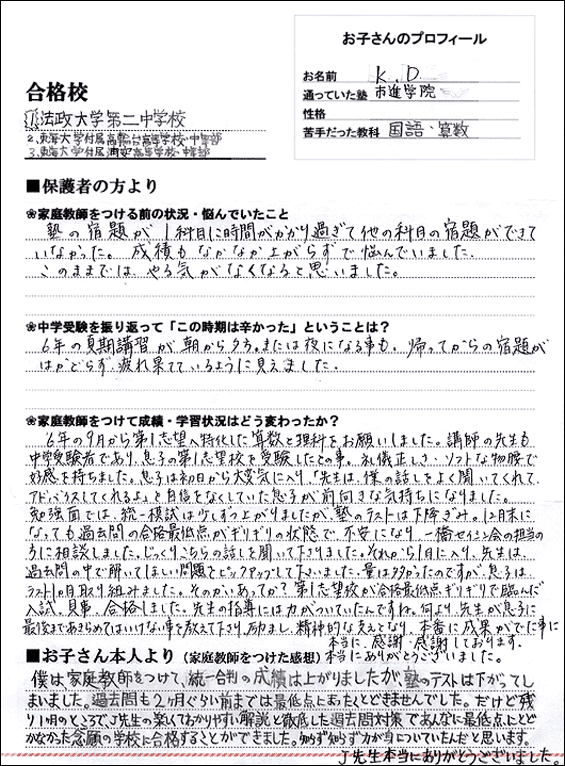 お子さんのプロフィール
お名前 K.D.
通っていた塾 市進学院
性格
苦手だった教科 国語・算数
合格校
1.法政大学第二中学校
2.東海大学付属高輪台高等学校・中等部
3.東海大学付属浦安高等学校・中等部
■保護者の方より
❀家庭教師をつける前の状況・悩んでいたこと
塾の宿題が1科目に時間がかかり過ぎて他の科目の宿題ができて
いなかった。成績もなかなか上がらずで悩んでいました。
このままでは、やる気がなくなると思いました。
❀中学受験を振り返って「この時期は辛かった」ということは?
6年の夏期講習が朝から夕方。または夜になる事も。帰ってからの宿題が
はかどらず、疲れ果てているように見えました。
❀家庭教師をつけて成績・学習状況はどう変わったか?
6年の9月から第1志望へ特化した算数と理科をお願いしました。講師の先生も
中学受験者であり、息子の第1志望校を受験したとの事。礼儀正しき・ソフトな物腰で
好感を持ちました。息子は初日から大変気に入り、「先生は、僕の話しをよく聞いてくれて、
アドバイスしてくれるよ」と自信をなくしていた息子が前向きな気持ちになりました。
勉強面では、統一模試は少しずつ上がりましたが、塾のテストは下降ぎみ。12月末に
なっても過去問の合格最低点がギリギリの状態で、不安になり、一橋セイシン会の担当の
方に相談しました。じっくりこちらの話しを聞いて下りました。それから1月に入り、先生は、
過去問の中で解いてほしい問題をピックアップして下さいました。量は多かったのですが、息子は
ラスト1ヵ月取り組みました。そのかいあってか?第1志望校が合格最低点ギリギリで臨んだ
入試、見事、合格しました。先生の指導には力がついていたんですね。何より、先生が息子に
最後まであきらめてはいけない事を教えて下さり、励まし、精神的な支えとなり、本番に成果がでた事に
本当に、感謝・感謝しております。
本当にありがとうございました。
■お子さん本人より(家庭教師をつけた感想)
僕は、家庭教師をつけて、統一合判の成績は上がりましたが、塾のテストは下がってし
まいました。過去問も2ヶ月ぐらい前までは最低点にまったくとどきませんでした。だけど残
り1ヵ月のところで、J先生の楽しくてわかりやすい解説と徹底した過去問対策であんなに最低点にとど
かなかった念願の学校に合格することができました。知らず知らず力が身についていたんだと思います。
J先生本当にありがとうございました。